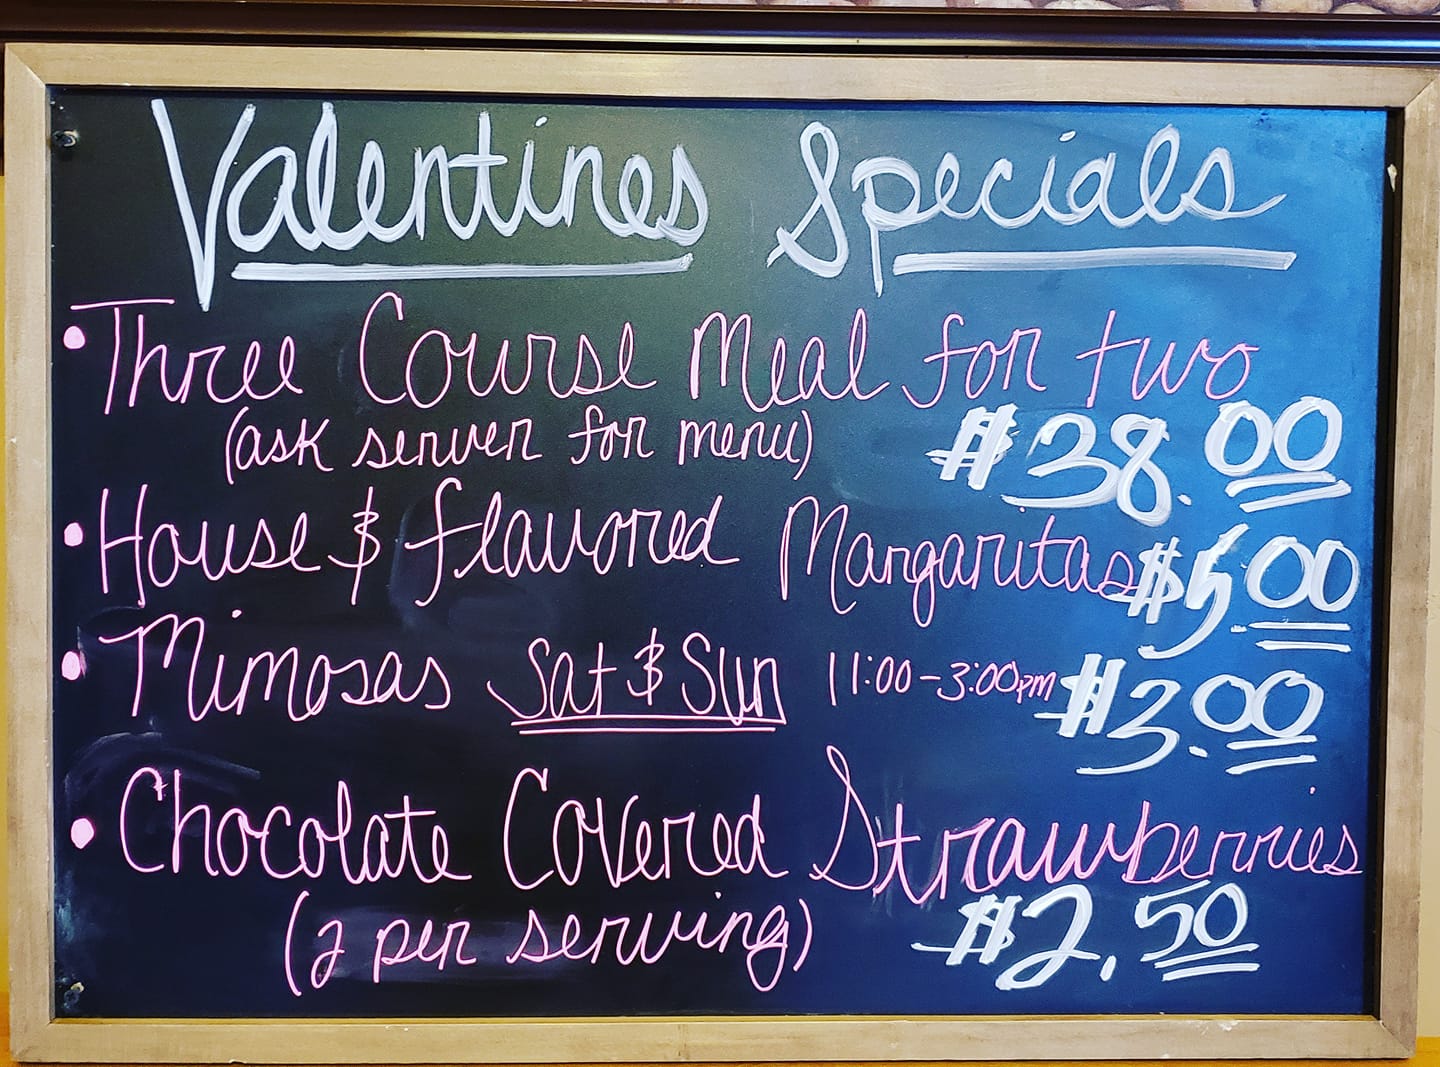 Valentines Specials
• Three Course Meal for two
(ask server for menu) $38.00
• House & flavored Margaritas $5.00
• Mimosas Sat & Sun 11:00-3:00pm $3.00
• Chocolate Covered Strawberries
(2 per serving) $2.50